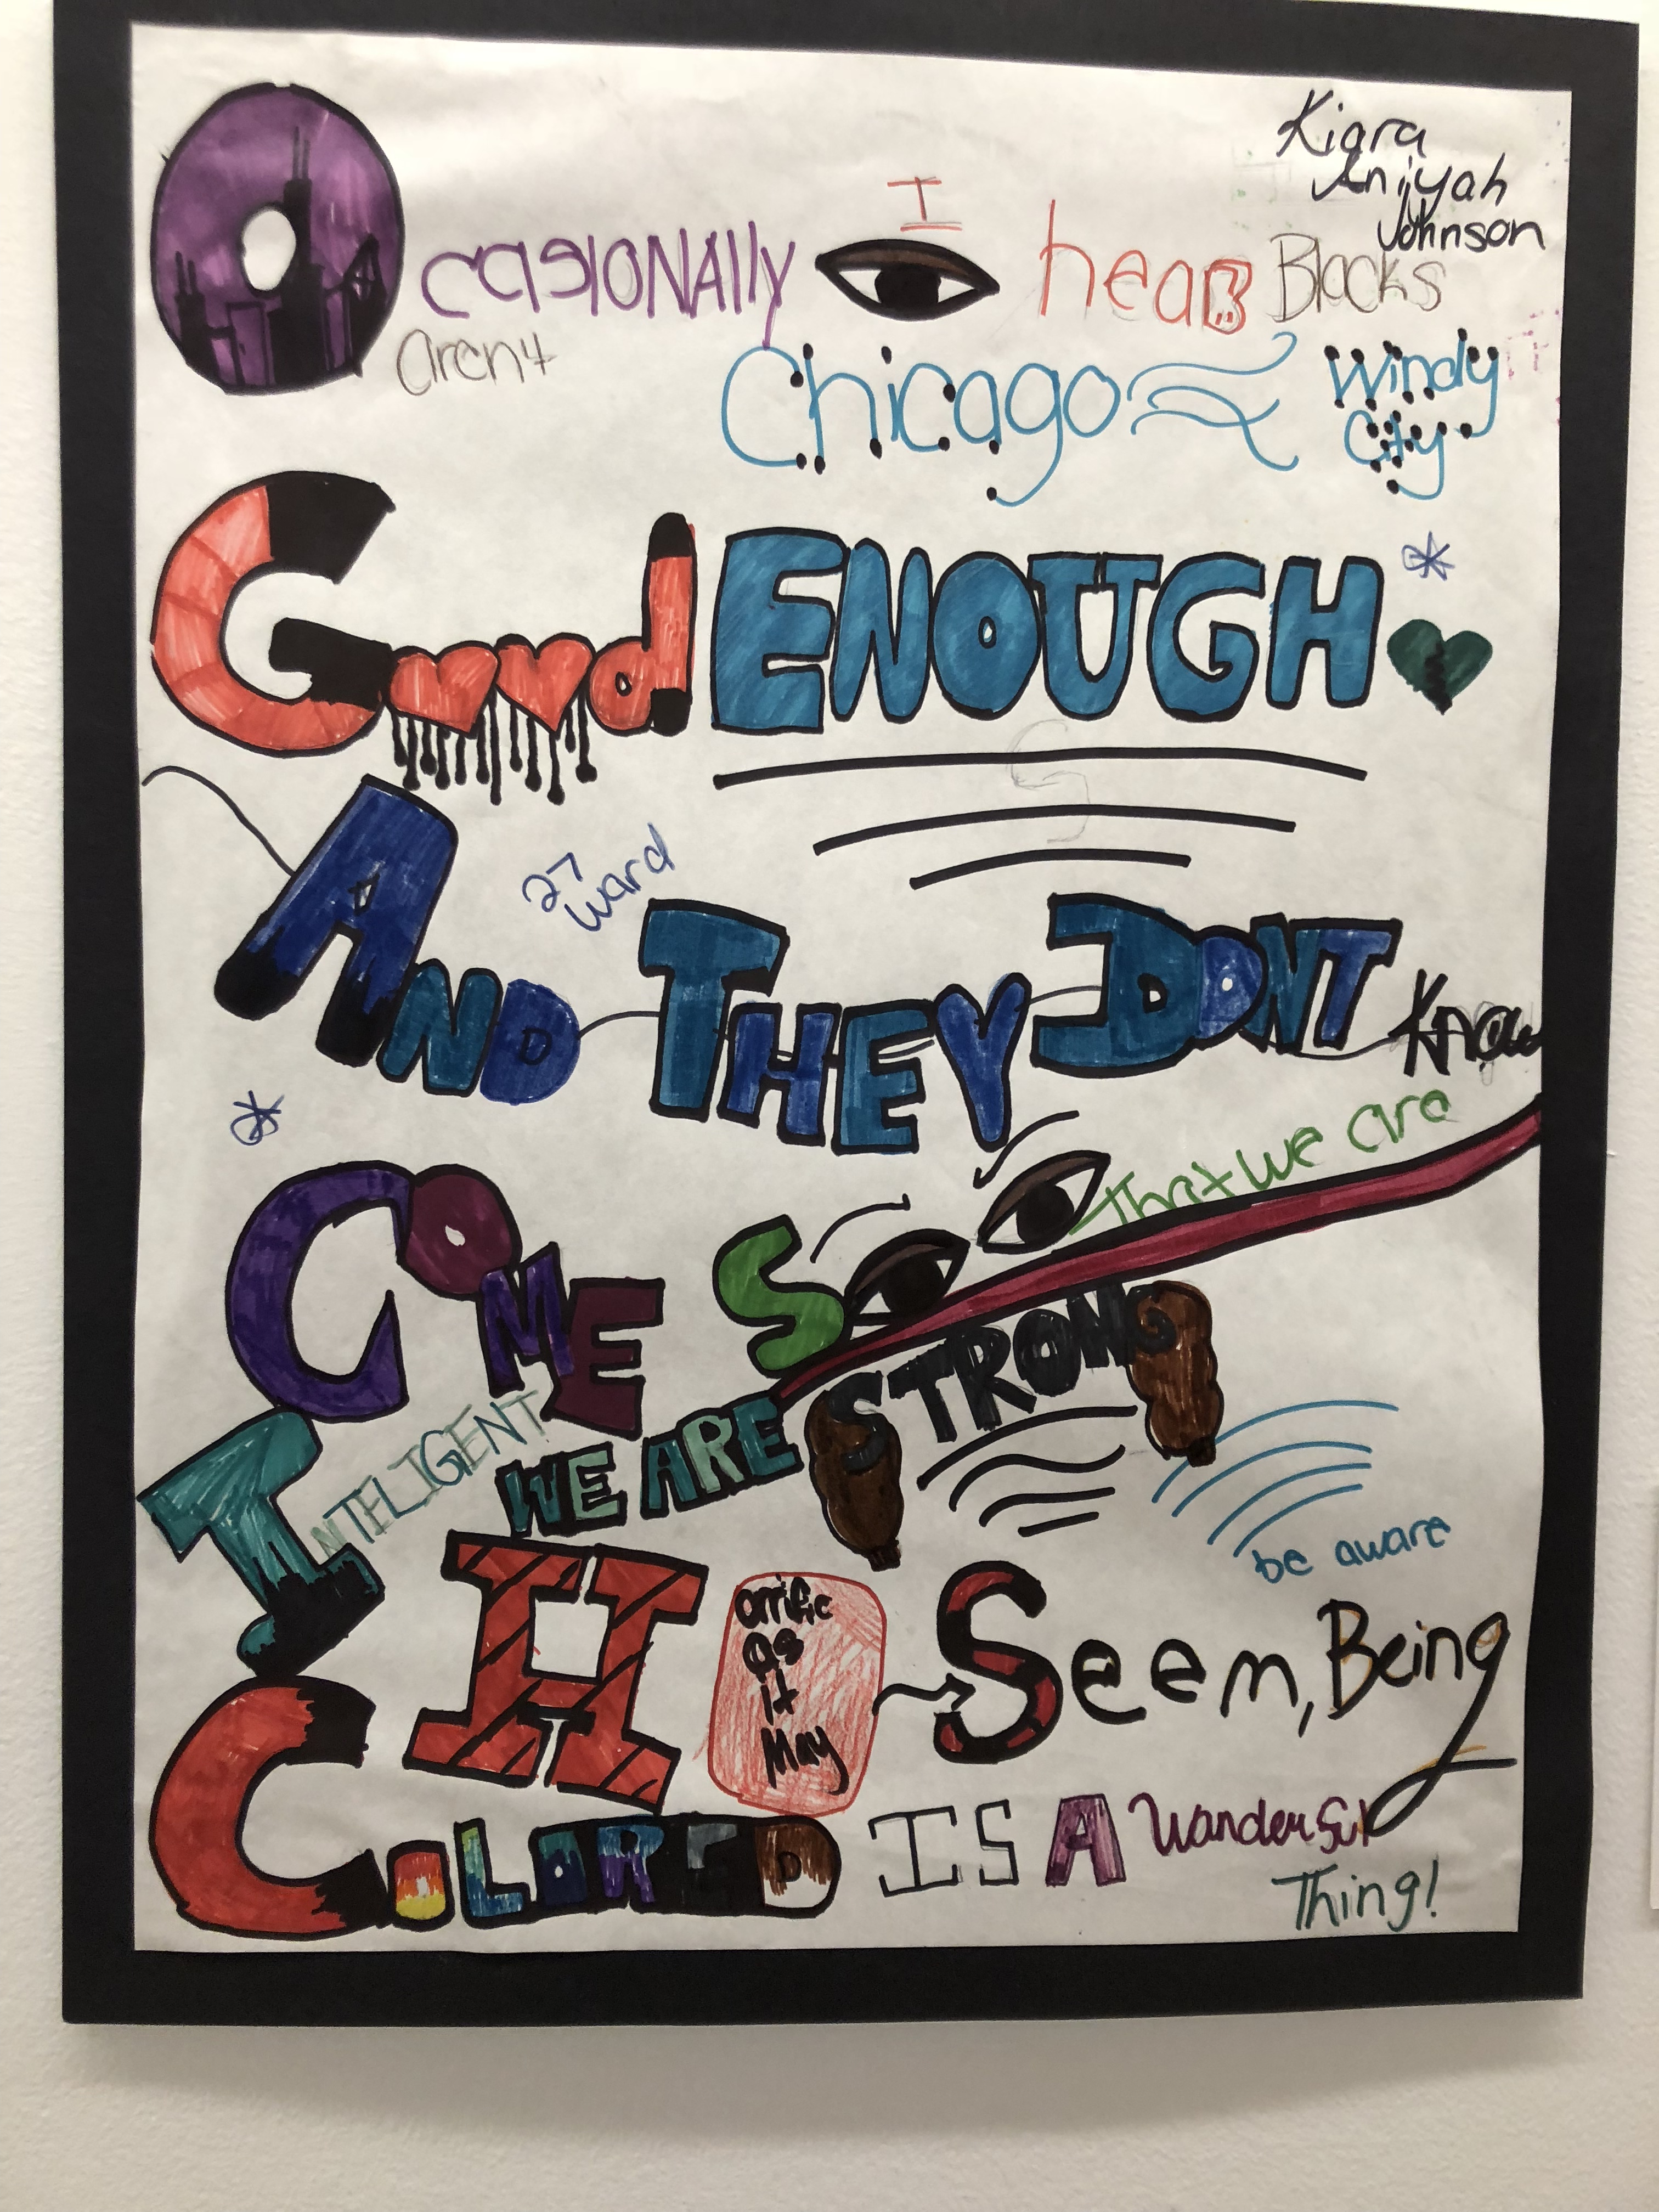 Kiara
Aniyah
Johnson
OcasionAlly I hear Blacks
arent
Chicago Windy
City
Good ENOUGH
27
Ward
AND THEY DONT Know
COME SO That we are
INTELIGENT WE ARE STRONG
be aware
Horrific
as
it
May
Seem, Being
COLORED IS A Wanderful
Thing!